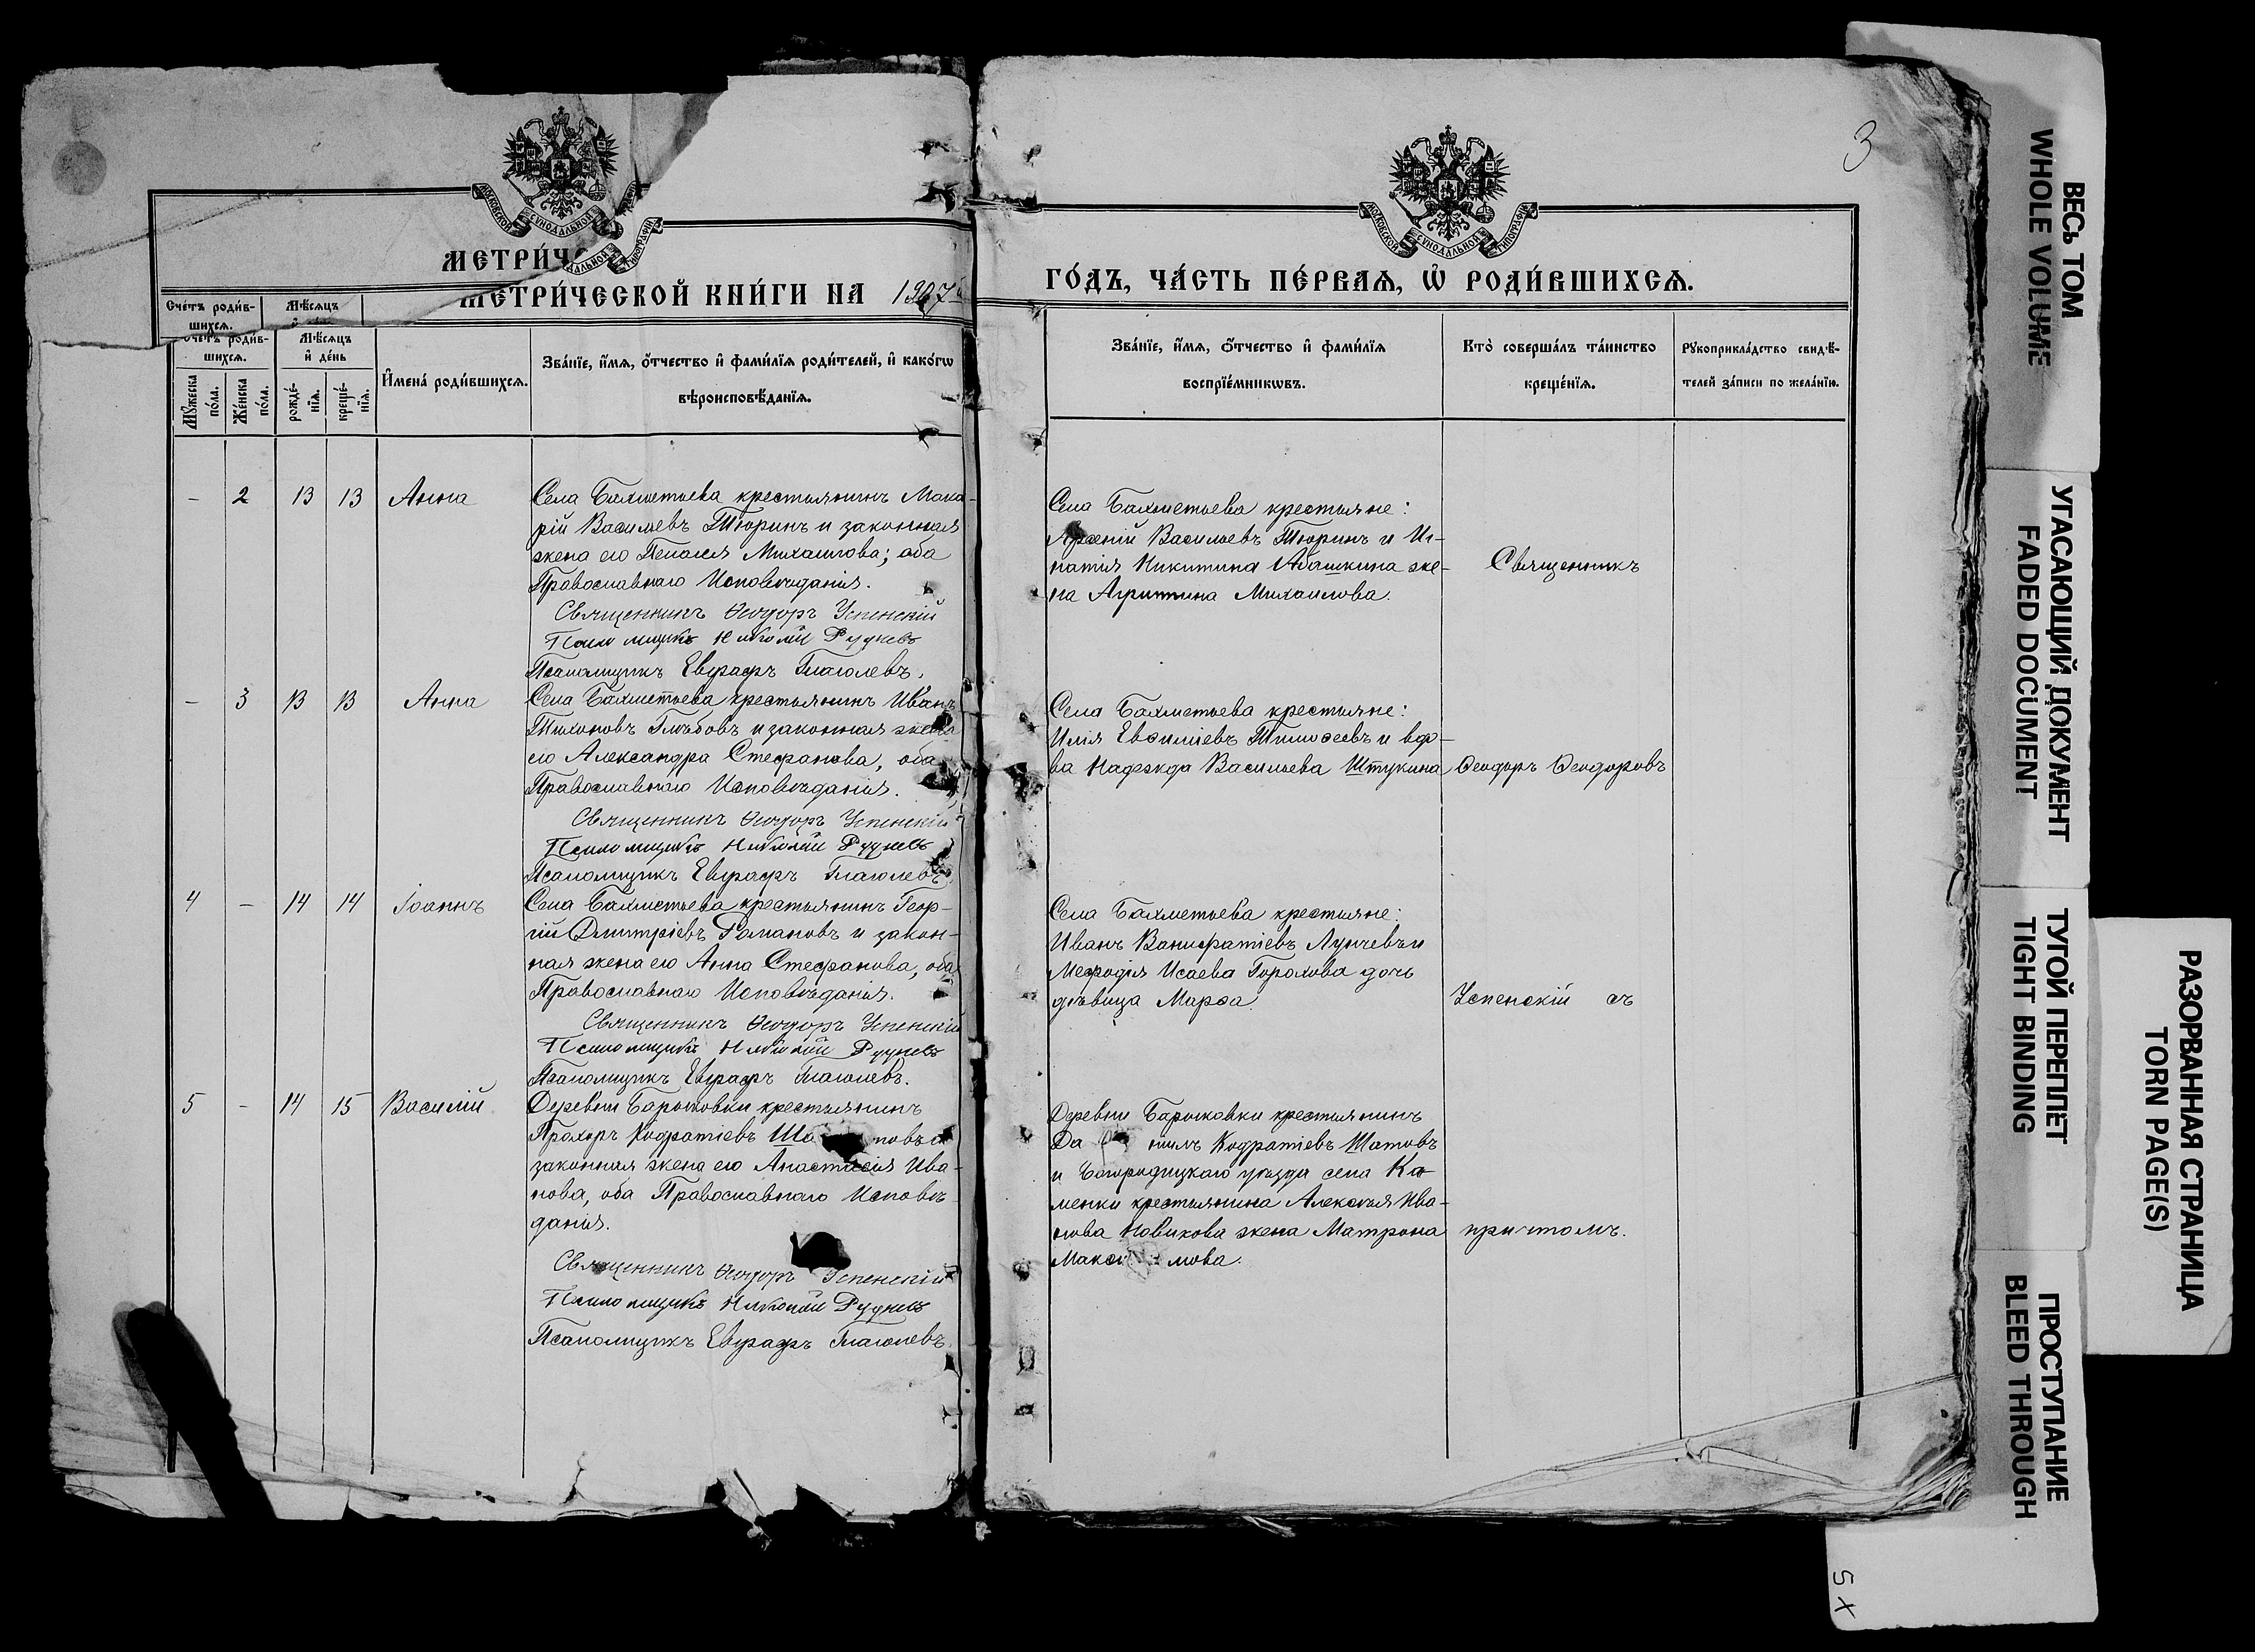 3
МОСКОВСКОЙ СѴНОДАЛЬНОЙ
МОСКОВСКОЙ СѴНОДАЛЬНОЙ ТИПОГРАФІИ
МЕТРИ́Ч
МЕТРИ́ЧЕСКОЙ КНИ́ГИ НА 1907
ГО́ДЪ, ЧА́СТЬ ПЕ́РВАѦ, Ѡ҆ РОДИ́ВШИХСѦ.
Сче́тъ роди́в-
шихсѧ.
Мѣ́сѧцъ
Сче́тъ роди́в-
шихсѧ.
Мѣ́сѧцъ
и҆ де́нь
Мꙋ́жеска по́ла.
Же́нска по́ла.
рожде́-
нїѧ.
креще́-
нїѧ.
И҆мена̀ роди́вшихсѧ.
Зва́нїе, и҆́мѧ, ѻ҆́тчество и҆ фами́лїѧ роди́телей, и҆ како́гѡ
вѣроисповѣ́данїѧ.
Зва́нїе, и҆́мѧ, ѻ҆́тчество и҆ фами́лїѧ
воспрїе́мникѡвъ.
Кто̀ соверша́лъ та́инство
креще́нїѧ.
Рꙋкоприкла́дство свидѣ́-
телей за́писи по жела́нїю.
- 2 13 13 Анна
Села Бахметьева крестьянинъ Мака-
рій Васильевъ Тюринъ и законная
жена его Пелагея Михаилова; оба
Православнаго Исповѣданія.
Священникъ Ѳеодоръ Успенскій
Псаломщикъ Николай Рудневъ
Псаломщикъ Евграфъ Глаголевъ.
Села Бахметьева крестьяне:
Арсеній Васильевъ Тюринъ и Иг-
натія Никитина Абашкина же-
на Агриппина Михаилова.
Священникъ
- 3 13 13 Анна
Села Бахметьева крестьянинъ Иванъ
Тихоновъ Глѣбовъ и законная жена
его Александра Стефанова, оба
Православнаго Исповѣданія.
Священникъ Ѳеодоръ Успенскій
Псаломщикъ Николай Рудневъ
Псаломщикъ Евграфъ Глаголевъ.
Села Бахметьева крестьяне:
Илія Евѳиміевъ Тимоѳеевъ и вдо-
ва Надежда Васильева Штукина
Ѳеодоръ Ѳеодоровъ
4 - 14 14 Іоаннъ
Села Бахметьева крестьянинъ Геор-
гій Дмитріевъ Романовъ и закон-
ная жена его Анна Стефанова, оба
Православнаго Исповѣданія.
Священникъ Ѳеодоръ Успенскій
Псаломщикъ Николай Рудневъ
Псаломщикъ Евграфъ Глаголевъ.
Села Бахметьева крестьяне:
Иванъ Вонифатіевъ Лунчевъ и
Мефодія Исаева Горохова дочь
дѣвица Марѳа.
Успенскій съ
5 - 14 15 Василій
Деревни Барыковки крестьянинъ
Прохоръ Кодратіевъ Ша повъ и
законная жена его Анастасія Ива-
нова, оба Православнаго Исповѣ-
данія.
Священникъ Ѳеодоръ Успенскій
Псаломщикъ Николай Рудневъ
Псаломщикъ Евграфъ Глаголевъ.
Деревни Барыковки крестьянинъ
Да ніилъ Кодратіевъ Шатовъ
и Богородицкаго уѣзда села Ка-
менки крестьянина Алексѣя Ива-
нова Новикова жена Матрона
Макси мова.
причтомъ.
ВЕСЬ ТОМ
WHOLE VOLUME
УГАСАЮЩИЙ ДОКУМЕНТ
FADED DOCUMENT
ТУГОЙ ПЕРЕПЛЁТ
TIGHT BINDING
РАЗОРВАННАЯ СТРАНИЦА
TORN PAGE(S)
ПРОСТУПАНИЕ
BLEED THROUGH
5X